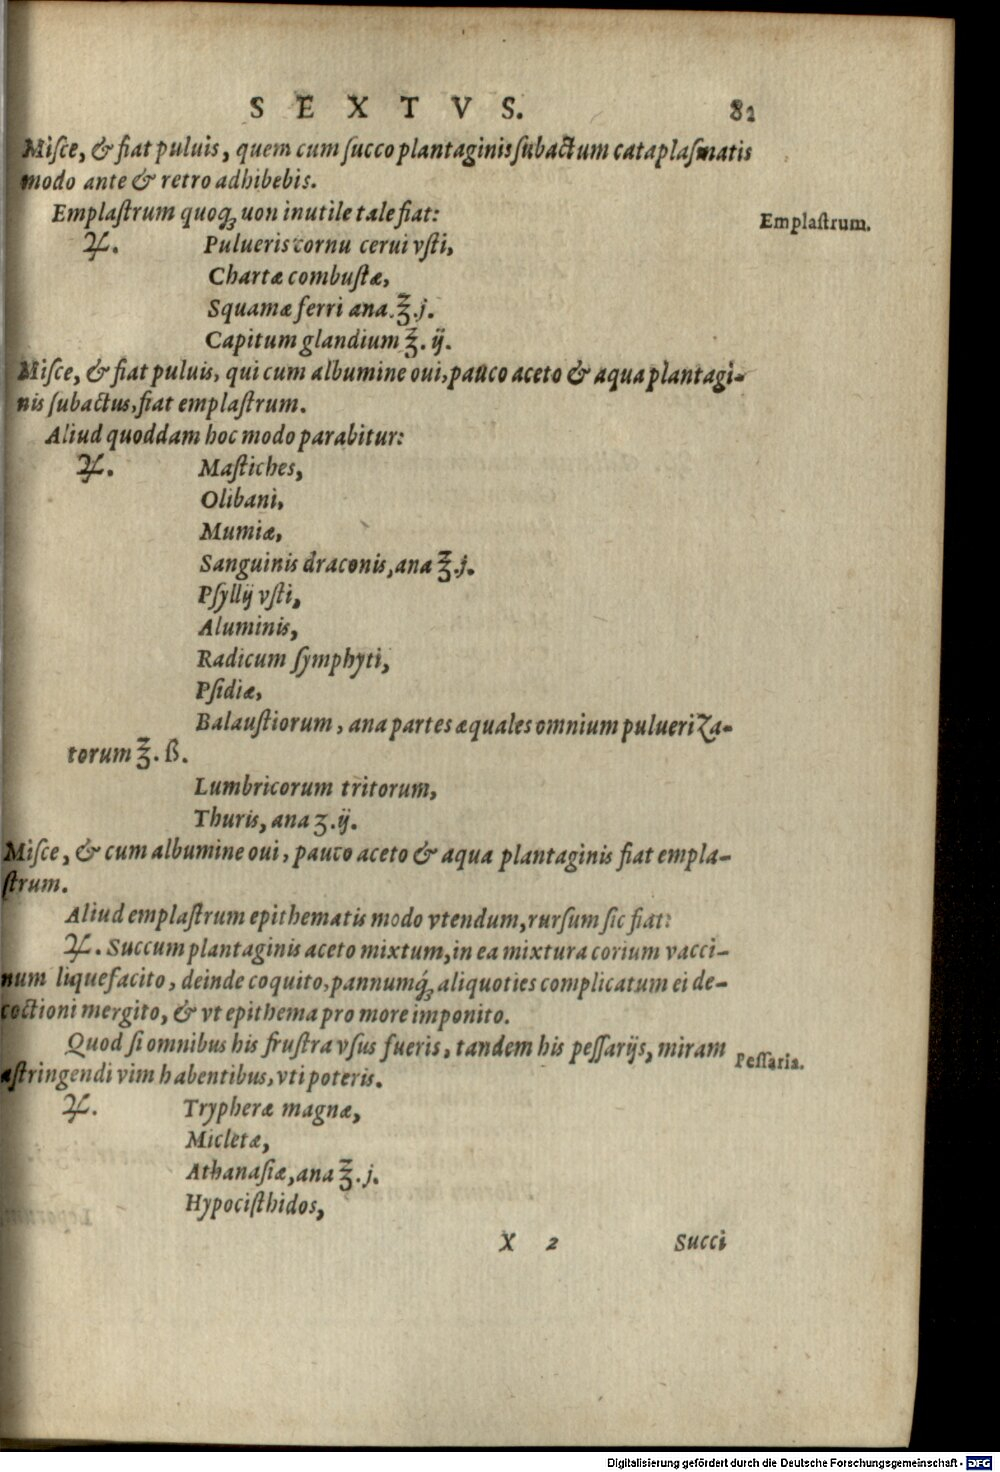 SEXTVS. 82
Miſce, & fiat puluis, quem cum ſucco plantaginis ſubactum cataplaſmatis
modo ante & retro adhibebis.
Emplaſtrum quoq́ꝫ uon inutile tale fiat:
Emplaſtrum.
℞. Pulueris cornu cerui vſti,
Chartæ combuſtæ,
Squamæ ferri ana ʒ̄.j.
Capitum glandium ʒ̄.ij.
Miſce, & fiat puluis, qui cum albumine oui, pauco aceto & aqua plantagi-
nis ſubactus, fiat emplaſtrum.
Aliud quoddam hoc modo parabitur:
℞. Maſtiches,
Olibani,
Mumiæ,
Sanguinis draconis, ana ʒ̄.j.
Pſyllij vſti,
Aluminis,
Radicum ſymphyti,
Pſidiæ,
Balauſtiorum, ana partes æquales omnium pulueriza-
torum ʒ̄.ß.
Lumbricorum tritorum,
Thuris, ana ʒ.ij.
Miſce, & cum albumine oui, pauco aceto & aqua plantaginis fiat empla-
ſtrum.
Aliud emplaſtrum epithematis modo vtendum, rurſum ſic fiat:
℞. Succum plantaginis aceto mixtum, in ea mixtura corium vacci-
num liquefacito, deinde coquito, pannumq́ꝫ aliquoties complicatum ei de-
coctioni mergito, & vt epithema pro more imponito.
Quod ſi omnibus his fruſtra vſus fueris, tandem his peſſarijs, miram
Peſſaria.
aſtringendi vim habentibus, vti poteris.
℞. Trypheræ magnæ,
Micletæ,
Athanaſiæ, ana ʒ̄.j.
Hypociſthidos,
X 2 Succi
Digitalisierung gefördert durch die Deutsche Forschungsgemeinschaft - DFG